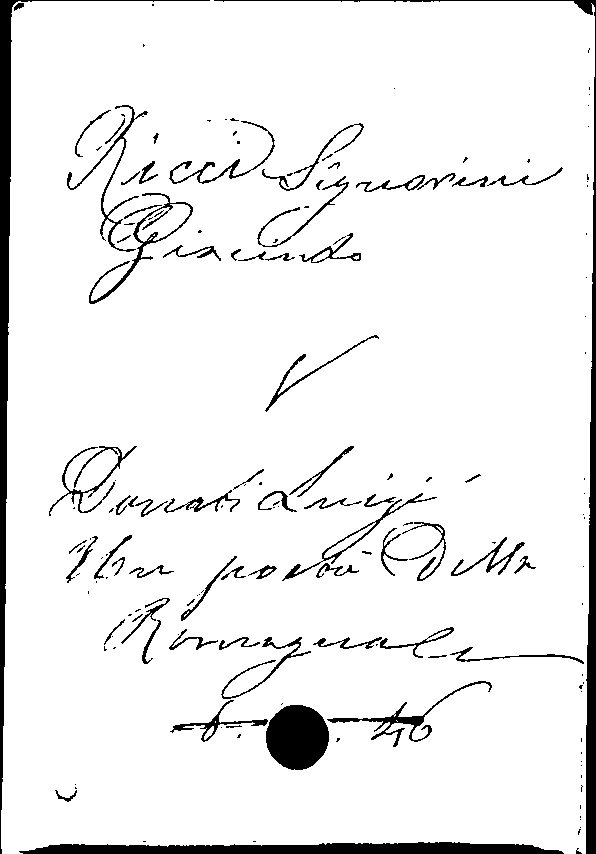 Ricci Signorini
Giacinto
V
Donati Luigi
Un poeta Della
Romagna
6. . 46